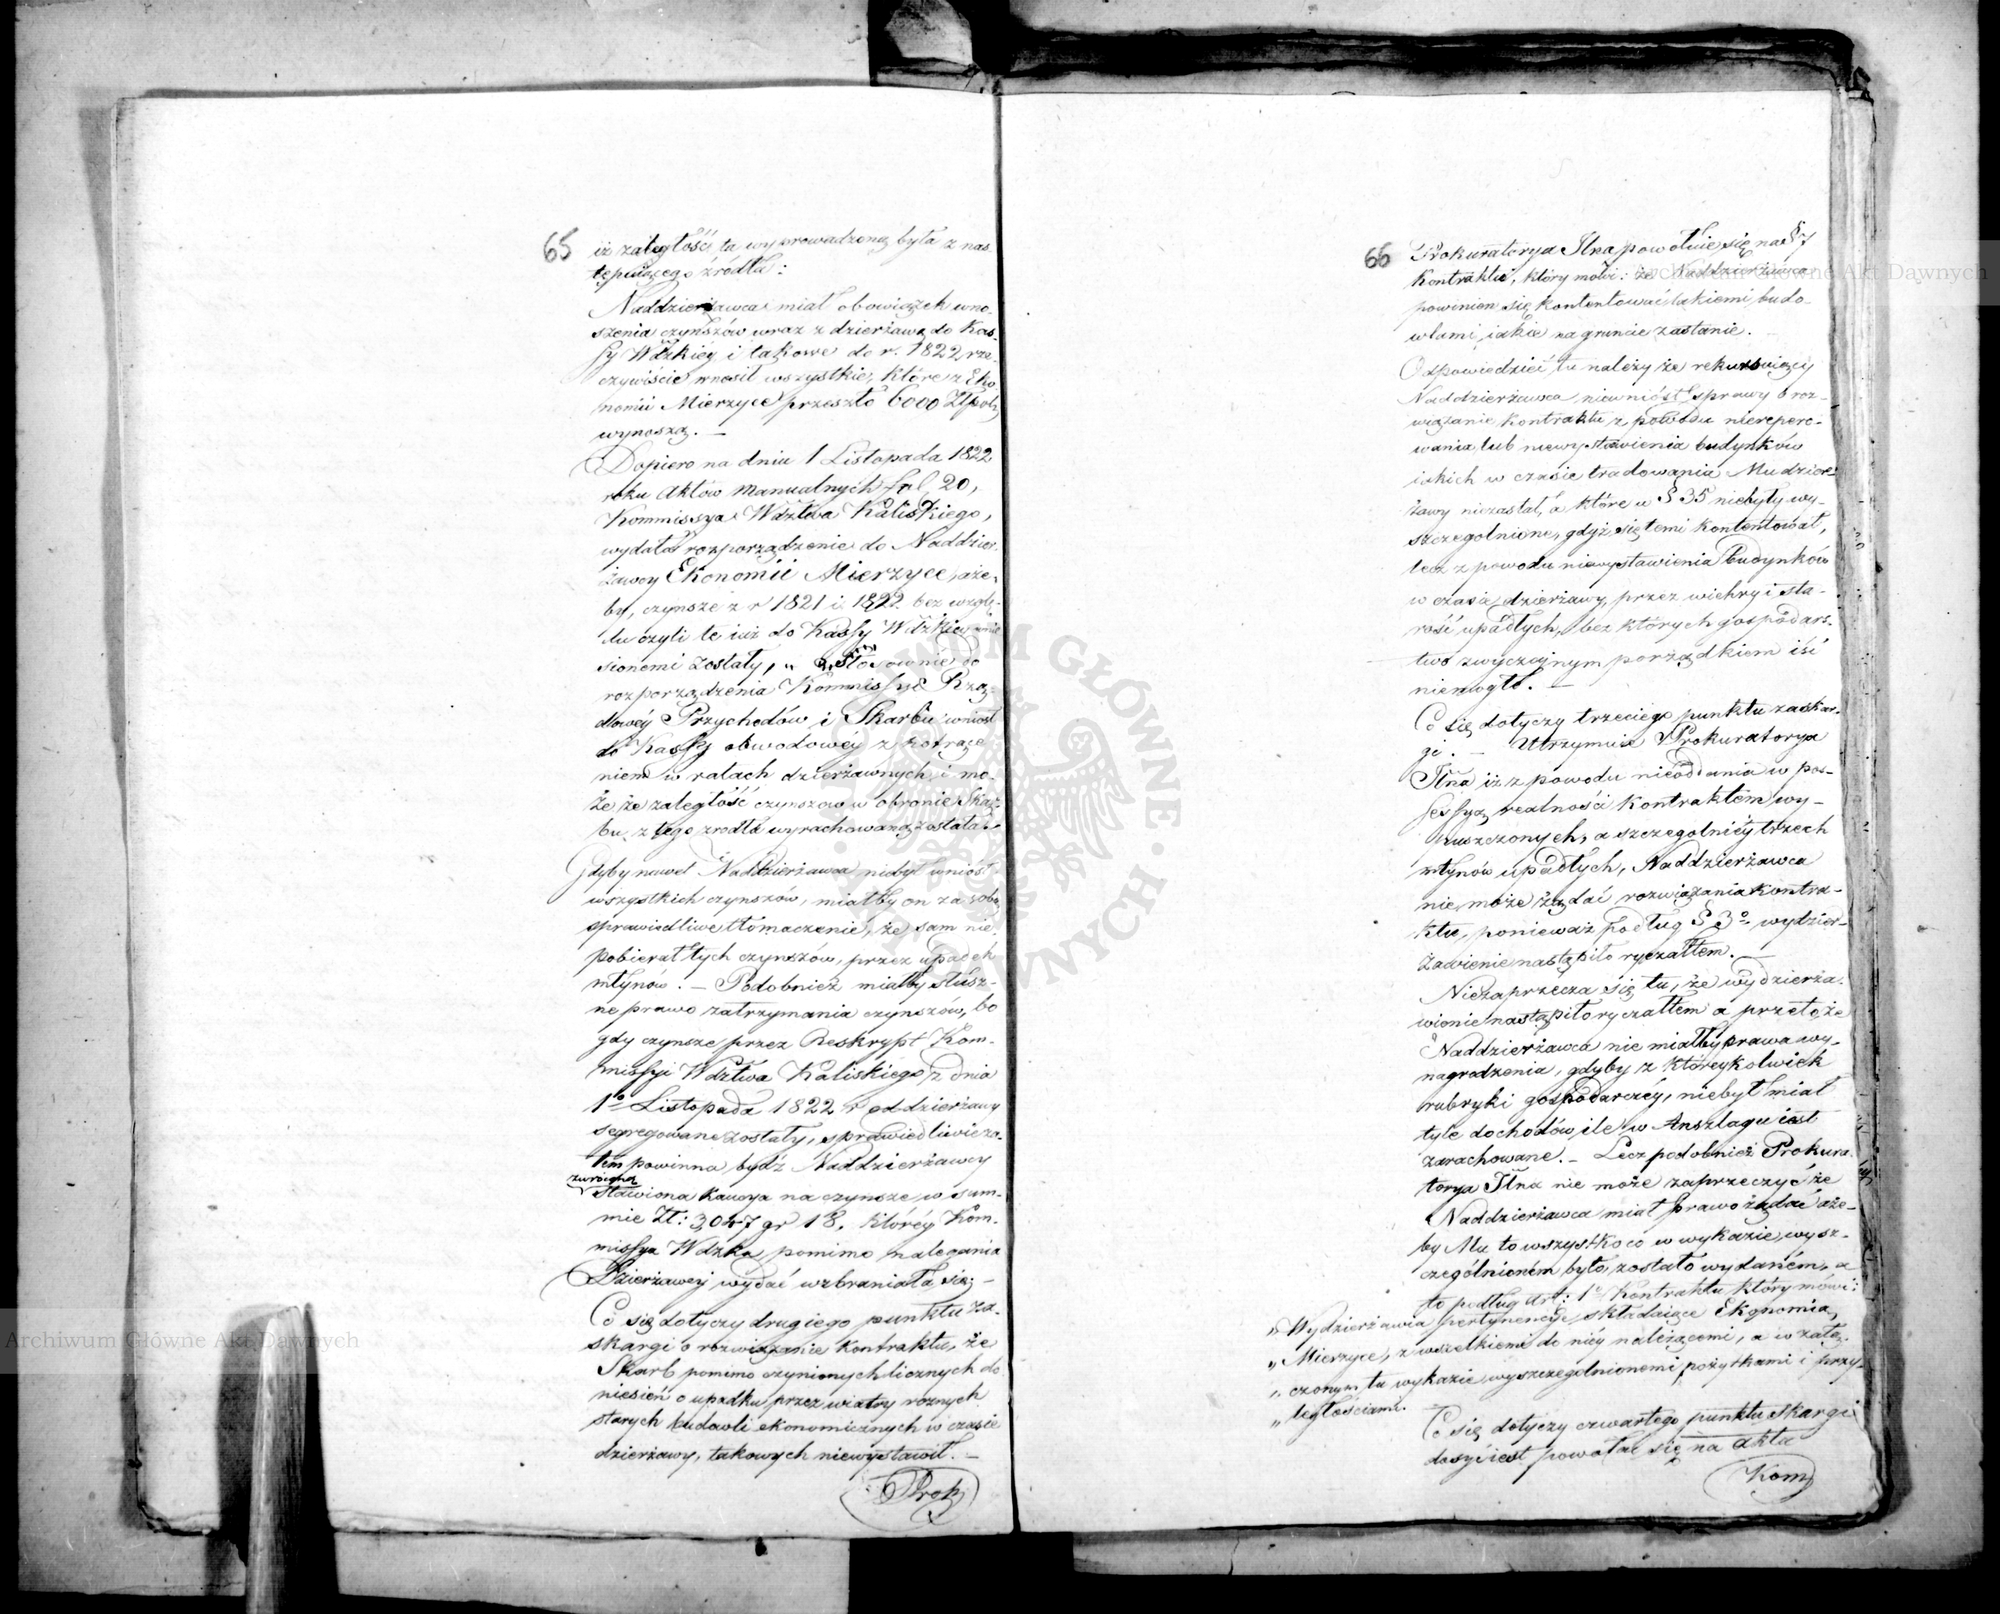 65
iż zaległość ta wyprowadzoną była z nas-
tępuiącego źródła:
Naddzierżawca miał obowiązek wno-
szenia czynszów wraz z dzierżawą do Kas-
sy Wdzkiey i takowe do r. 1822 rze-
czywiście wnosił wszystkie, które z Eko-
nomii Mierzyce przeszło 6000 Zł pol:
wynoszą. —
Dopiero na dniu 1 Listopada 1822
roku Aktów manualnych fol, 20,
Kommissya Wdztwa Kaliskiego,
wydała rozporządzenie do Naddzier-
żawcy Ekonomii Mierzyce, aże-
by, czynsze z r 1821 i 1822 bez wzglę-
du czyli te iuż do Kassy Wdzkiey wnie-
sionemi zostały, stosownie do
rozporządzenia Kommissyi Rzą-
dowéy Przychodów i Skarbu wniósł
do Kassy obwodowéy z potrące-
niem w ratach dzierżawnych, i mo-
że że zaległość czynszów w obronie Skar-
bu z tego zrodła wyrachowaną została. —
Gdyby nawet Naddzierżawca niebył wniósł
wszystkich czynszów, miałby on za sobą
sprawiedliwe tłomaczenie, że sam nie
pobierał tych czynszów, przez upadek
młynów. — Podobnież miałby słusz-
ne prawo zatrzymania czynszów, bo
gdy czynsze przez Reskrypt Kom-
missyi Wdztwa Kaliskiego z dnia
1o Listopada 1822 r od dzierżawy
segregowane zostały, sprawiedliwie za-
tem powinna bydź Naddzierżawcy
zwróconą
stawiona kaucya na czynsze, w sum-
mie Zł: 3047 gr 18. któréy Kom-
missya Wdzka pomimo nalegania
Dzierżawcy wydać wzbraniała się. —
Co się dotyczy drugiego punktu za-
skargi o rozwiązanie kontraktu, że
Skarb pomimo czynionych licznych do-
niesień o upadku przez wiatry roznych
starych budowli ekonomicznych w czasie
dzierżawy, takowych niewystawił. —
Prok
66
Prokuratorya Jlna powołuie się na § 7
Kontraktu, który mówi: że Naddzierżawca
powinien się kontentować takiemi budo-
wlami, iakie na gruncie zastanie. —
Odpowiedzieć tu należy że rekursuiący
Naddzierżawca, niewniósł sprawy o roz-
wiązanie kontraktu z powodu niereparo-
wania lub niewystawienia budynków
iakich w czasie tradowania Mu dzier-
żawy niezastał, a które w § 35 niebyły wy-
szczegolnione, gdyż się temi kontentował,
lecz z powodu niewystawienia Budynków
w czasie dzierżawy, przez wichry i sta-
rość upadłych, bez których gospodars-
two zwyczaynym porządkiem iść
niemogło. —
Co się dotyczy trzeciego punktu zaskar-
gi. — Utrzymuie Prokuratorya
Jlna iż z powodu nieoddania w pos-
sessyą realności kontraktem wy-
puszczonych, a szczególniéy trzech
młynów upadłych, Naddzierżawca
nie może żądać rozwiązania kontra-
ktu, ponieważ podług § 3o wydzier-
żawienie nastąpiło ryczałtem. —
Niezaprzecza się tu, że wydzierża-
wienie nastąpiło ryczałtem a przeto, że
Naddzierżawca nie miałby prawa wy-
nagrodzenia, gdyby z któreykolwiek
rubryki gospodarczéy, niebył miał
tyle dochodów ile w Anszlagu iest
zarachowane. — Lecz podobnież Prokura-
torya Jlna nie może zaprzeczyć że
Naddzierżawca miał prawo żądać aże-
by Mu to wszystko co w wykazie wysz-
czególnioném było, zostało wydaném, a
to podług Art: 1o Kontraktu który mówi:
„Wydzierżawia pertynencye składaiące Ekonomią
„Mierzyce, z wszelkiemi do niéy należącemi, a w załą-
„czonym tu wykazie wyszczególnionemi pożytkami i przy-
„ległościami.
Co się dotyczy czwartego punktu skargi
dosyć iest powołać się na akta
Kom
Archiwum Główne Akt Dawnych
Archiwum Główne Akt Dawnych